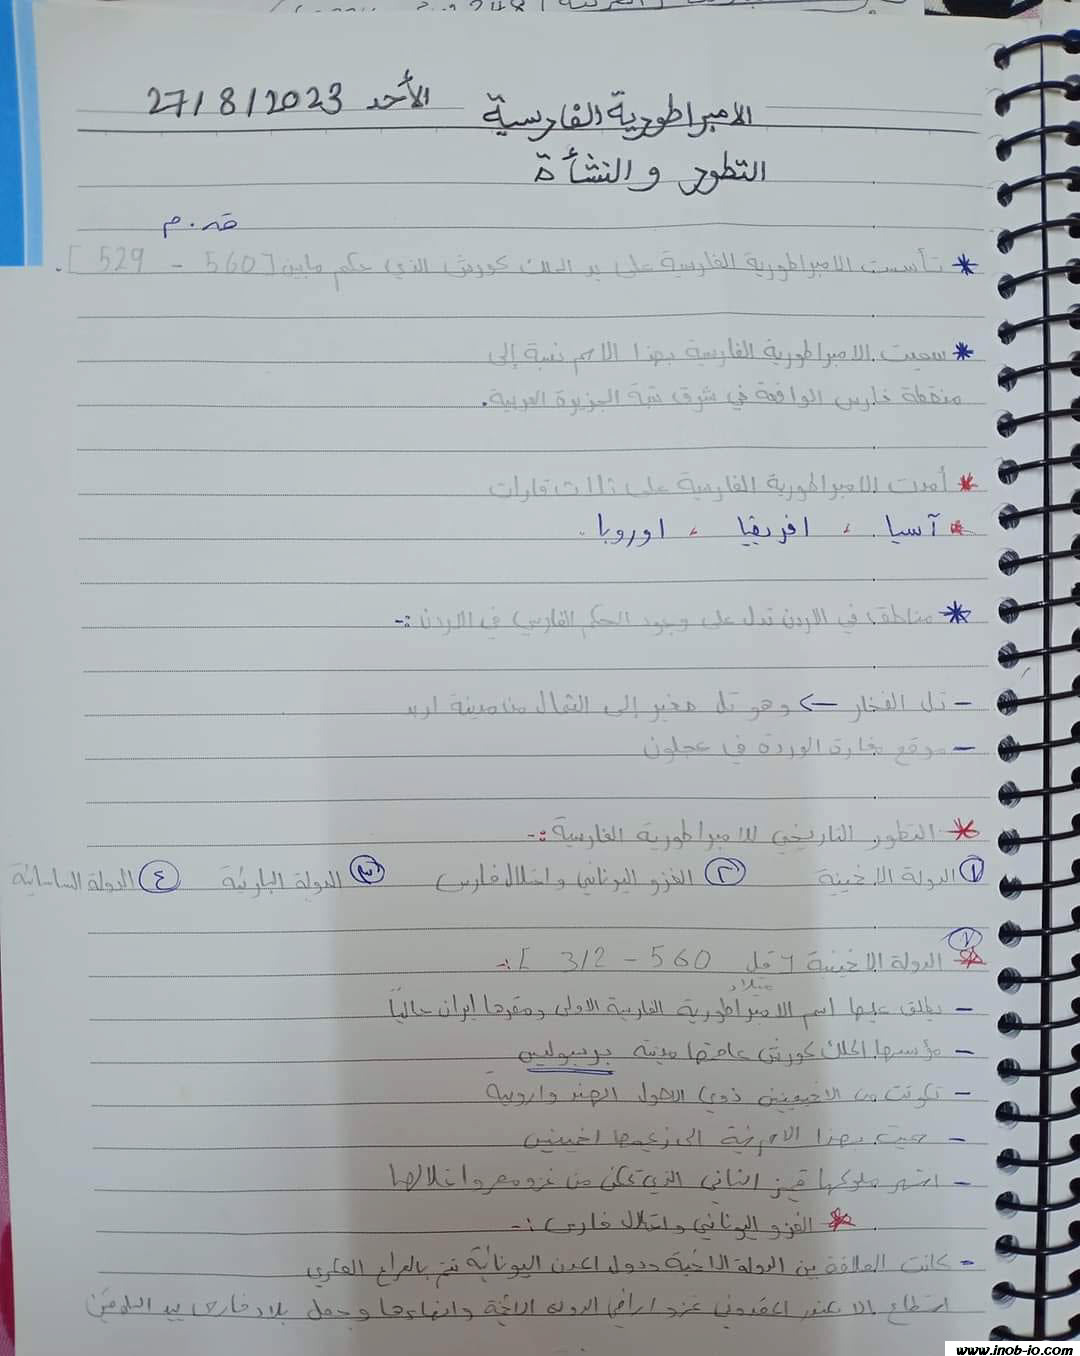 الأحد 27/8/2023
الامبراطورية الفارسية
التطور والنشأة
ق.م
* تأسست الامبراطورية الفارسية على يد الملك كورش الذي حكم مابين [560 - 529].
* سميت الامبراطورية الفارسية بهذا الاسم نسبة إلى
منقطة فارس الواقعة في شرق شبة الجزيرة العربية.
* أمدت الامبراطورية الفارسية على ثلاث قارات
* آسيا ، افريقيا ، اوروبا.
* مناطق في الاردن تدل على وجود الحكم الفارسي في الاردن :-
- تل الفخار -> وهو تل صغير إلى الشمال من مدينة اربد
- موقع مغارة الوردة في عجلون
* التطور التاريخي للامبراطورية الفارسية :-
١ الدولة الاخمينية ٢ الغزو اليوناني واحتلال فارس ٣ الدولة البارثية ٤ الدولة الساسانية
١
* الدولة الاخمينية [ قبل 560 - 312 ] :-
ميلاد
- يطلق عليها اسم الامبراطورية الفارسية الاولى ومقرها ايران حالياً
- مؤسسها الملك كورش عاصمتها مدينة برسبوليس
- تكونت من الاخمينين ذوي الاصول الهندواروبية
- سميت بهذا الاسم نسبة الى زعيمها اخمينس
- اشهر ملوكها قمبيز الثاني الذي تمكن من غزو مصر واحتلالها
* الغزو اليوناني واحتلال فارس :-
- كانت العلاقة بين الدولة الاخمية ودول المدن اليونانية تتم بالصراع العسكري
استطاع الاسكندر المقدوني غزو اراضي الدولة الاخمية وانهاءها وجعل بلاد فارس بيد السلوقين
www.inob-io.com